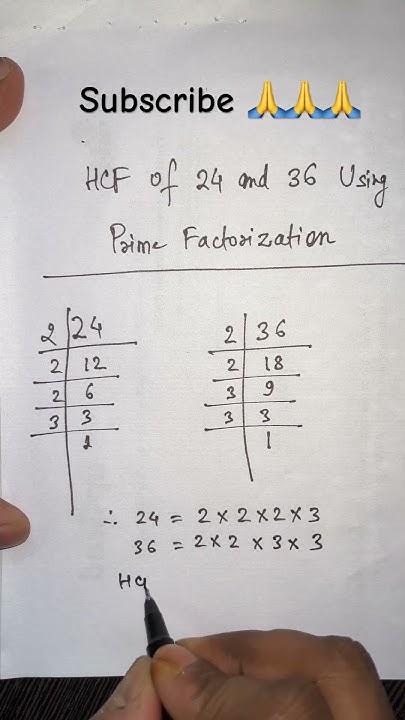 Subscribe 🙏🙏🙏
HCF of 24 and 36 Using
Prime Factorization
2 | 24
2 | 12
2 | 6
3 | 3
1
2 | 36
2 | 18
3 | 9
3 | 3
1
∴ 24 = 2 × 2 × 2 × 3
36 = 2 × 2 × 3 × 3
HC